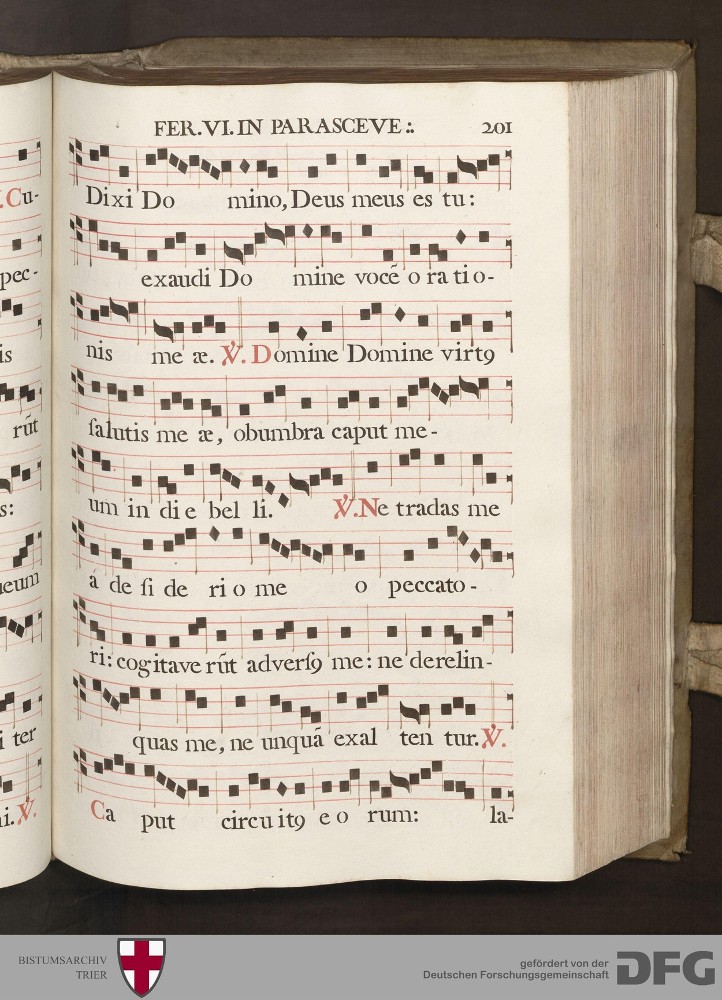 FER.VI.IN PARASCEVE:. 201
.Cu-
Dixi Do mino, Deus meus es tu:
pec-
exaudi Do mine vocē o ra ti o-
is
nis me æ. ℣. Domine Domine virtꝯ
rūt
ſalutis me æ, obumbra caput me-
s:
um in di e bel li. ℣. Ne tradas me
eum
á de ſi de ri o me o peccato-
ri: cogitave rūt adverſꝯ me: ne derelin-
i ter
quas me, ne unquā exal ten tur. ℣.
i. ℣.
Ca put circuitꝯ e o rum: la-
BISTUMSARCHIV
TRIER
gefördert von der
Deutschen Forschungsgemeinschaft
DFG